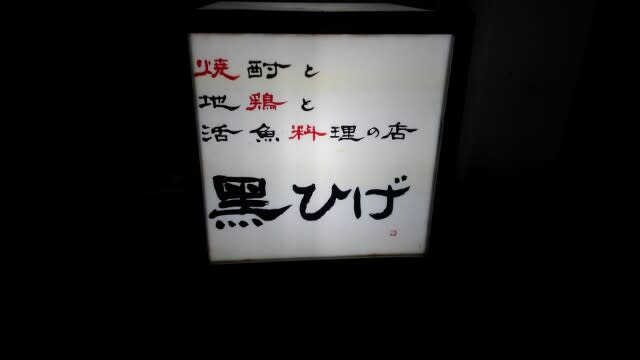 焼酎と
地鶏と
活魚料理の店
黒ひげ